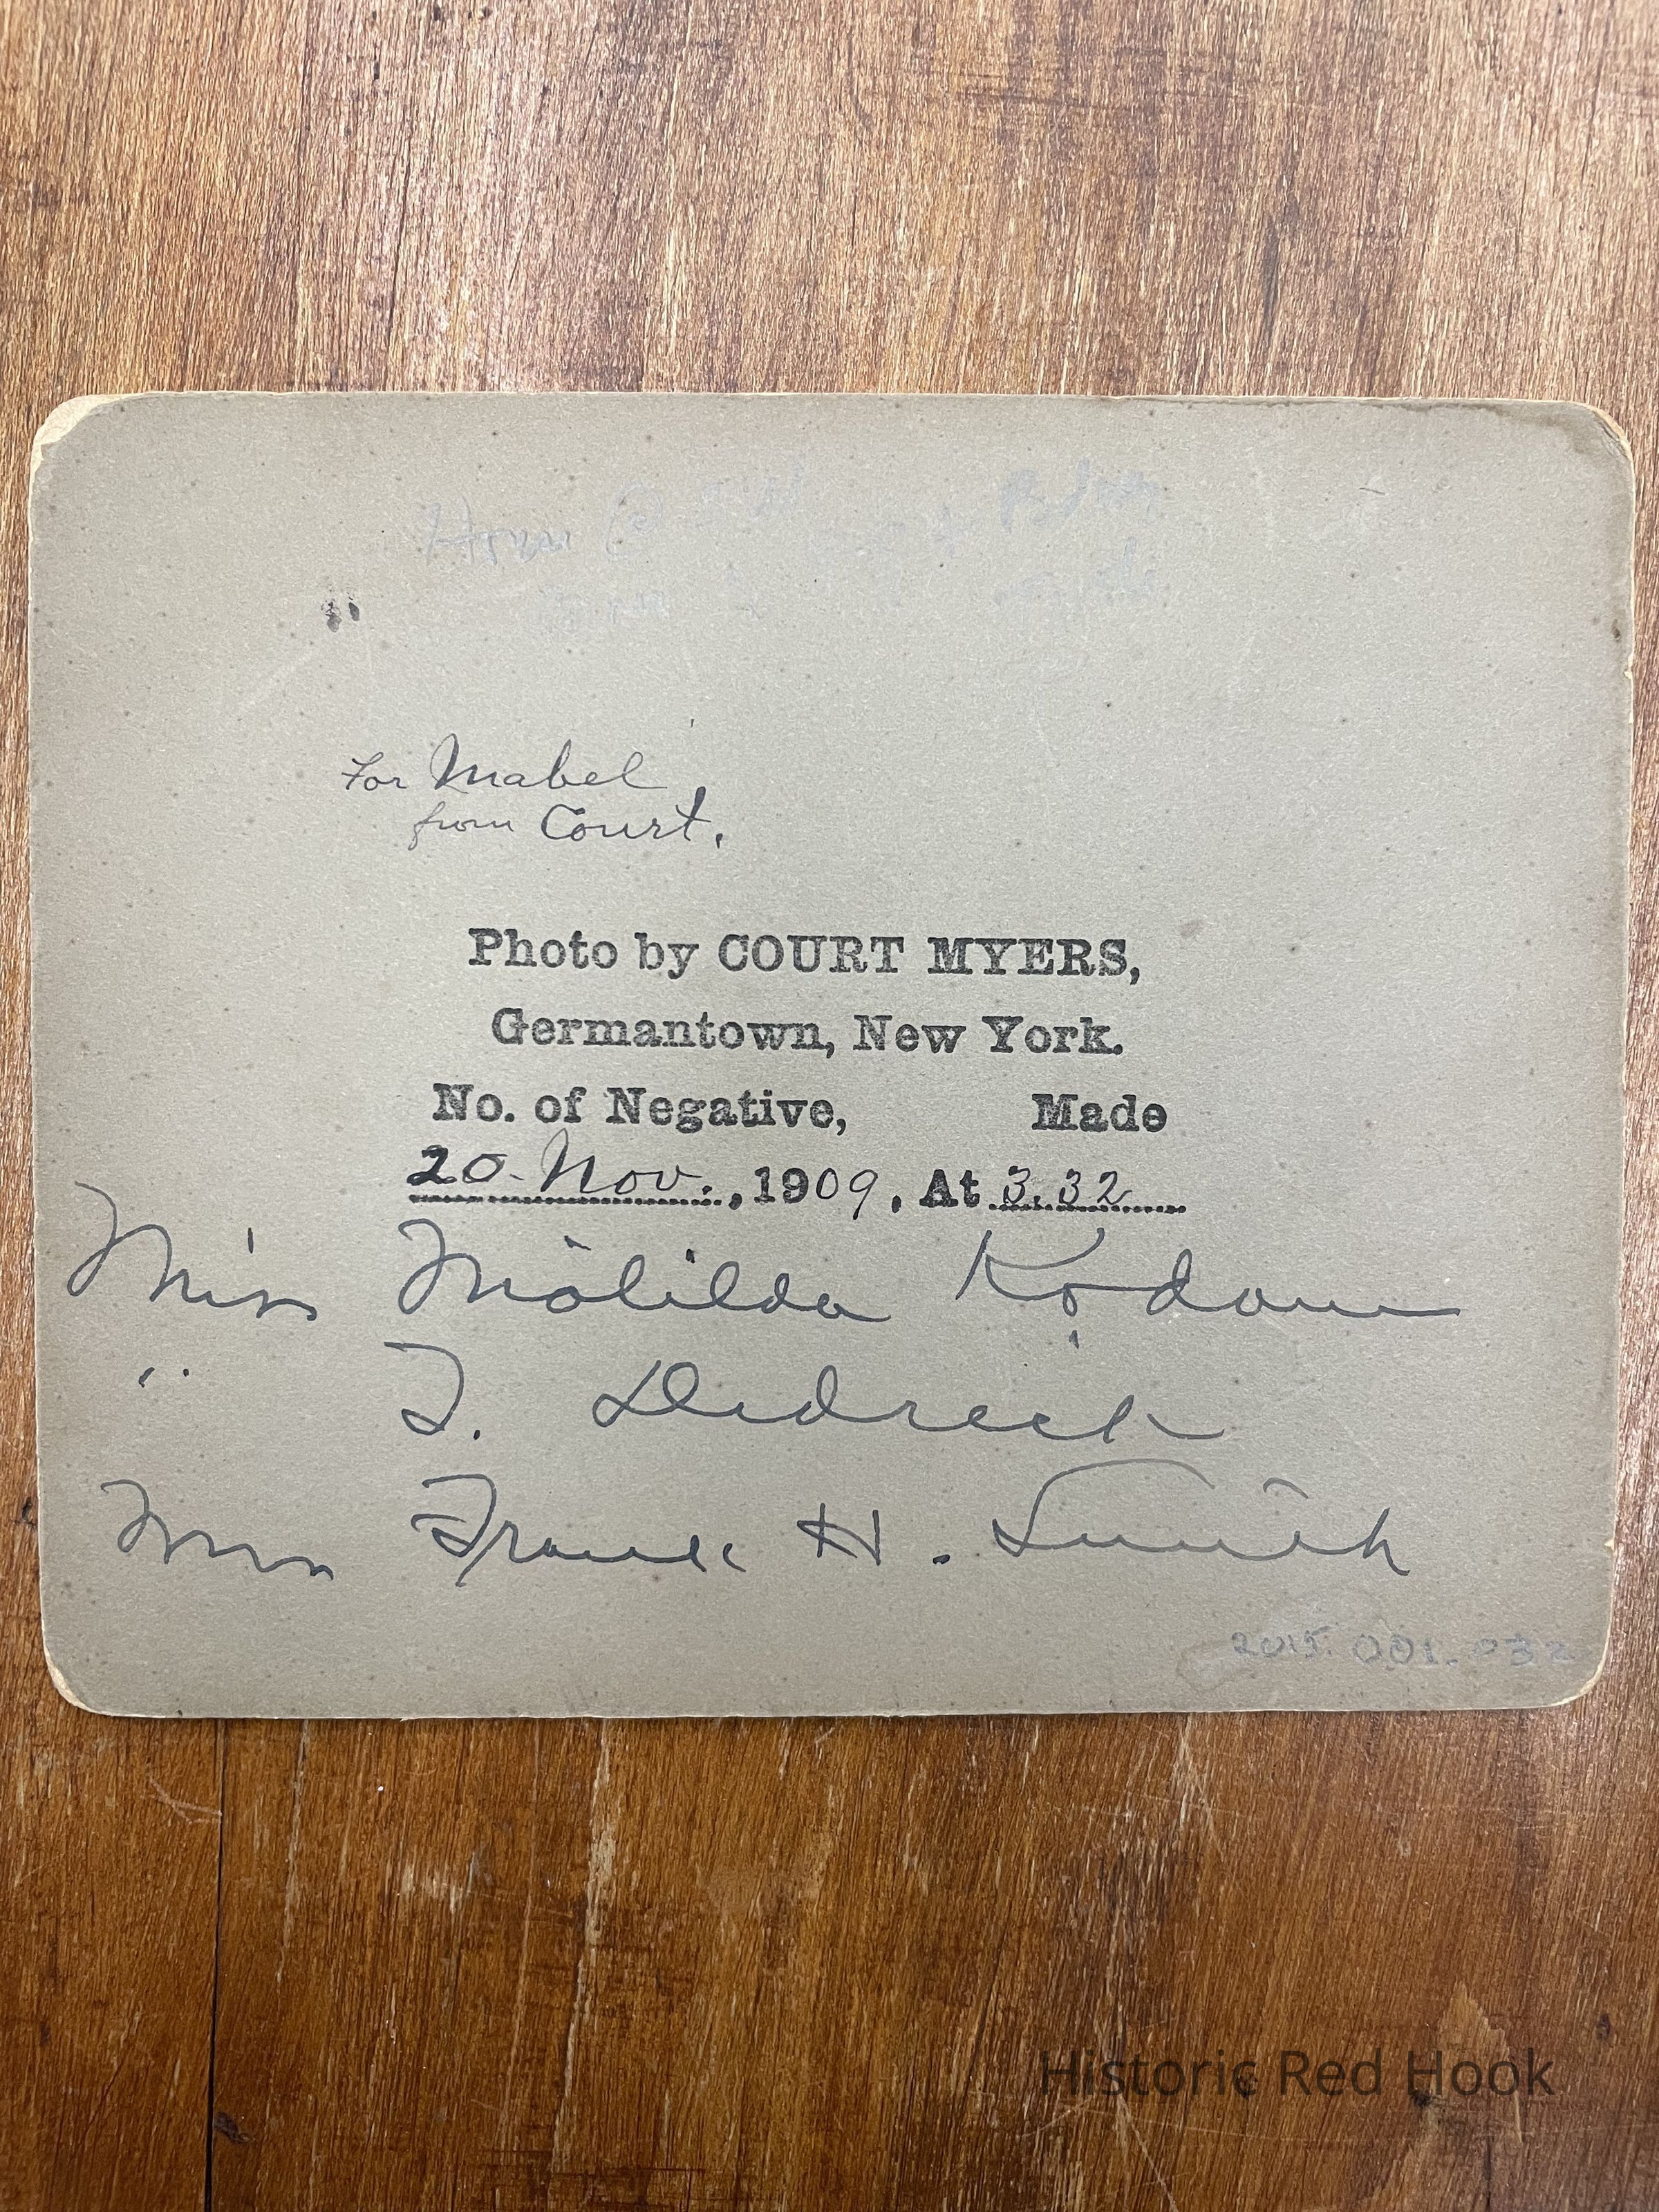 For Mabel
from Court.
Photo by COURT MYERS,
Germantown, New York.
No. of Negative, Made
20 Nov., 1909, At 3.32
Miss
" T. Didrick
Mrs Frank H. Smith
2015.001.032
Historic Red Hook